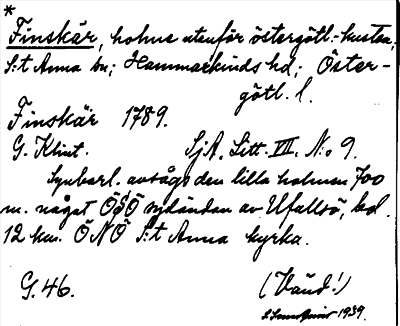 *
Finskär, holme utanför östergötl.-kusten;
S:t Anna sn; Hammarkinds hd; Öster-
götl. l.
Finskär 1789.
G. Klint. SjA, Litt. VII, N:o 9.
Synbarl. avsågs den lilla holmen 700
m. något ÖSÖ sydändan av Ufallsö, bel.
12 km. ÖNÖ S:t Anna kyrka.
G. 46. (Vänd!)
1939.